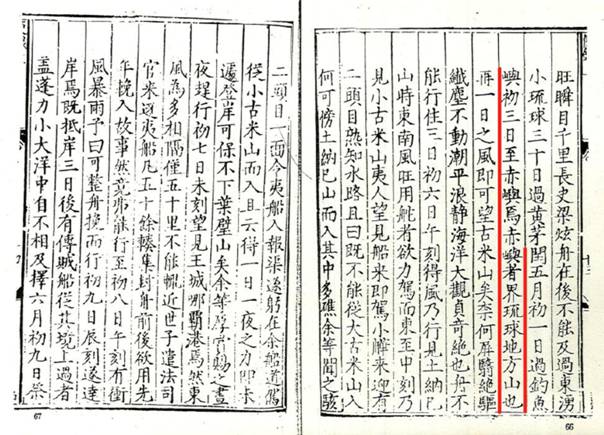 旺瞬目千里長史梁炫舟在後不能及過東湧
小琉球三十日過黃茅閏五月初一日過釣魚
嶼初三日至赤嶼焉赤嶼者界琉球地方山也
再一日之風即可望古米山矣奈何屏翳絕驅
纖塵不動潮平浪静海洋大觀真奇絕也舟不
能行住三日初六日午刻得風乃行見土納已
山時東南風旺用舵者欲力駕而東至申刻乃
見小古米山夷人望見船來即駕小來迎有
二頭目熟知水路且曰既不能從大古米山入
何可傍土納已山而入其中多礁余等聞之駭
66
二頭目一面令夷船入報渠遂躬在余船道駕
從小古米山而入且云得一日一夜之力即未
遽登岸可保不下葉壁山矣余等厚賞賜之晝
夜趕行初七日未刻望見王城那霸港焉然東
風為多相隔僅五十里不能輒近世子遣法司
官來迎夷船凡五十餘輳集封舟前後欲用先
年挽入故事然竟弗能行至初八日午刻有衝
風暴雨予曰可整舟挽而行初九日辰刻遂達
岸焉既抵岸三日後有傳賊船從其境上過者
蓋蓬力小大洋中自不相及擇六月初九日祭
67